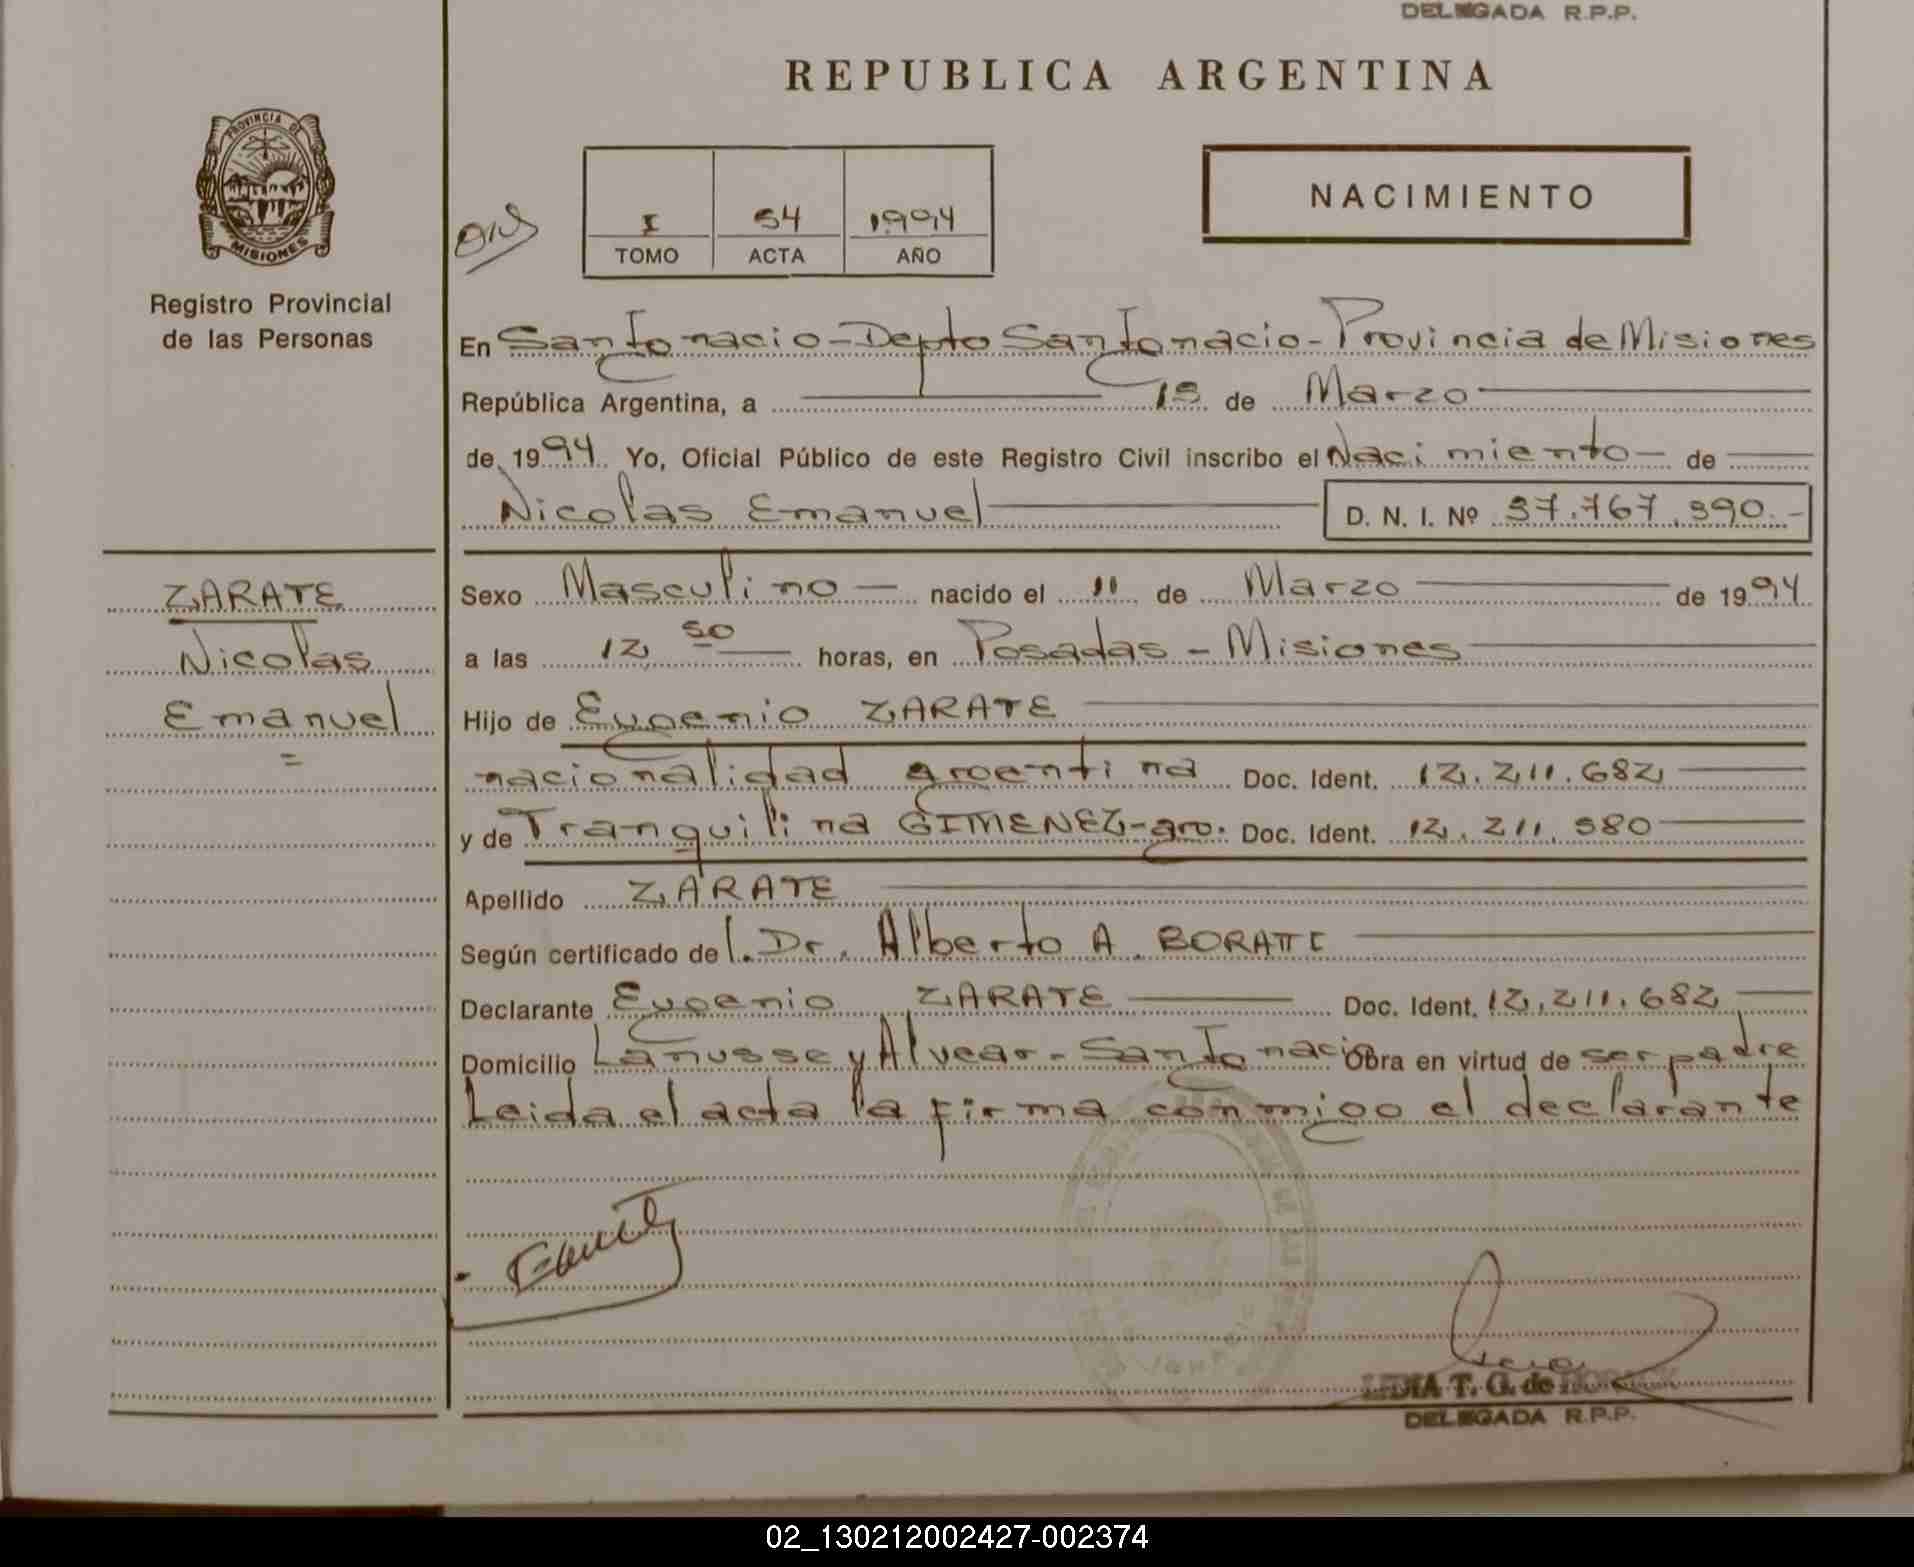 DELEGADA R.P.P.
REPUBLICA ARGENTINA
PROVINCIA DE
MISIONES
Registro Provincial
de las Personas
NACIMIENTO
I 54 1994
TOMO ACTA AÑO
En San Ignacio - Depto San Ignacio - Provincia de Misiones
República Argentina, a 15 de Marzo
de 1994 Yo, Oficial Público de este Registro Civil inscribo el Nacimiento de
Nicolas Emanuel D. N. I. Nº 37.767.390.-
ZARATE
Nicolas
Emanuel
=
Sexo Masculino nacido el 11 de Marzo de 1994
a las 12 50 horas, en Posadas - Misiones
Hijo de Eugenio ZARATE
nacionalidad argentina Doc. Ident. 12.211.682
y de Tranquilina GIMENEZ-arg. Doc. Ident. 12.211.580
Apellido ZARATE
Según certificado del Dr. Alberto A. BORATTE
Declarante Eugenio ZARATE Doc. Ident. 12.211.682
Domicilio Lanusse y Alvear - San Ignacio Obra en virtud de ser padre
Leida el acta la firma conmigo el declarante
LIDIA T. G. de
DELEGADA R.P.P.
02_130212002427-002374